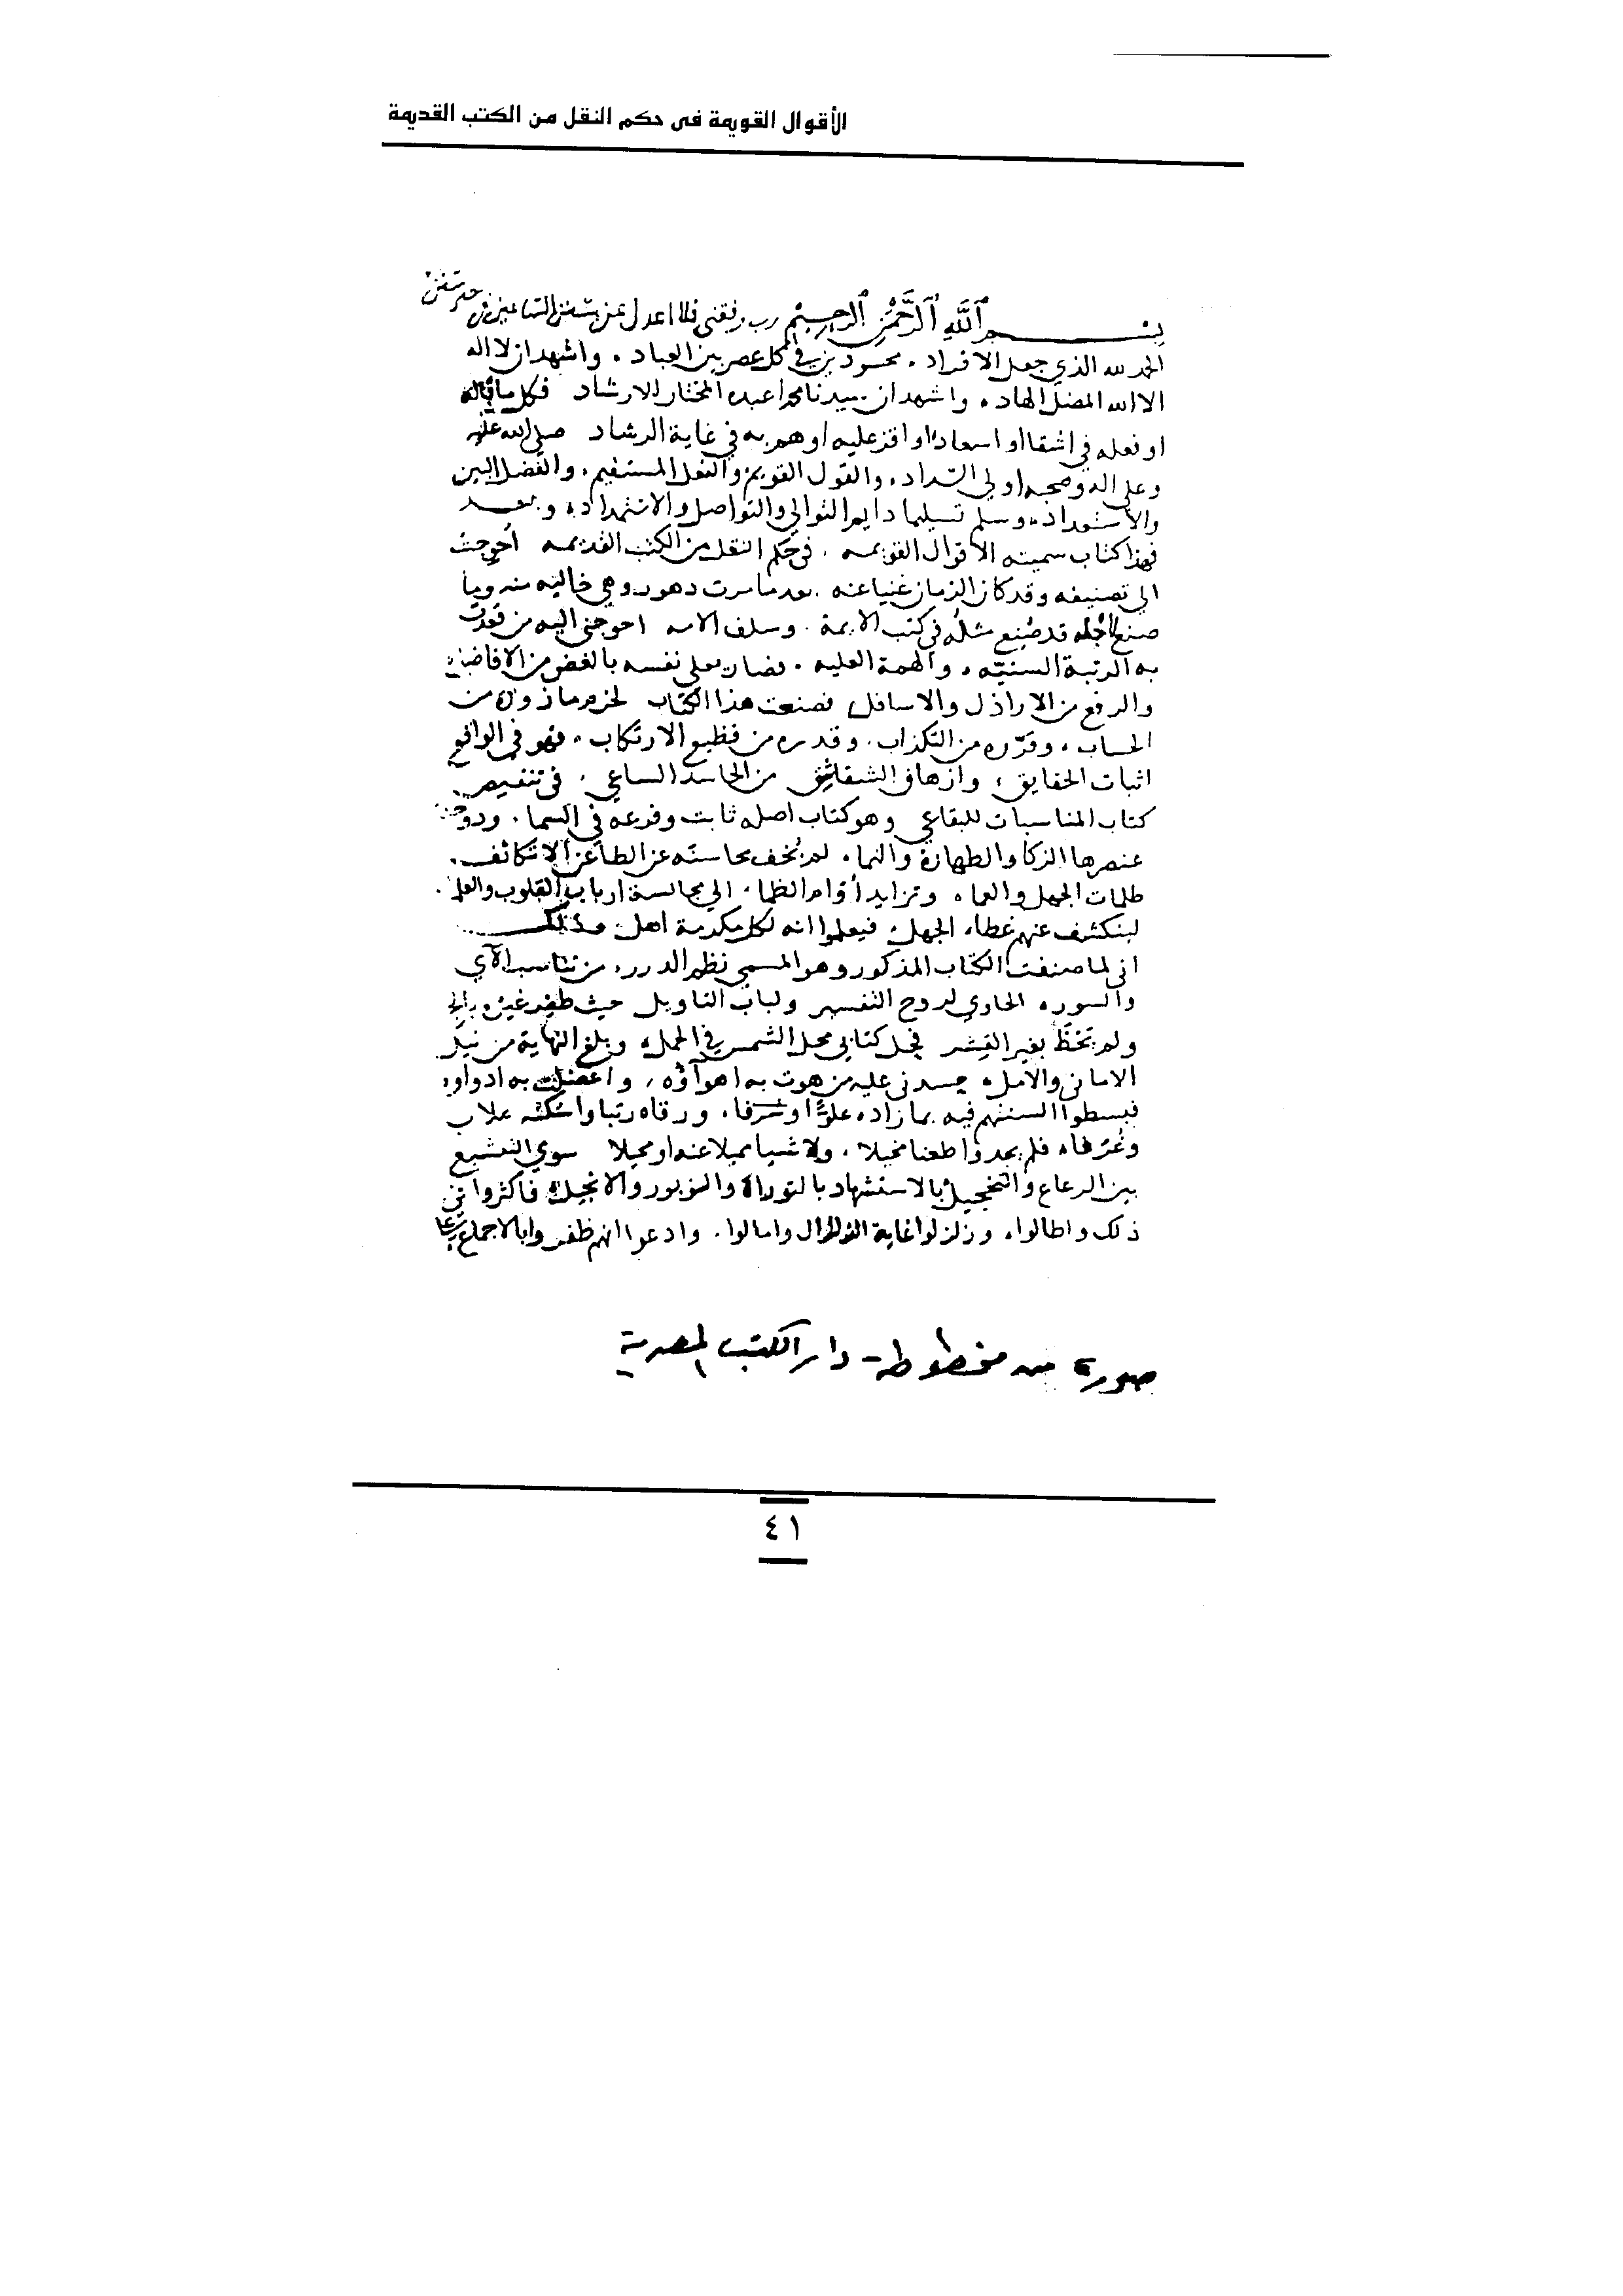 الأقوال القويمة فى حكم النقل من الكتب القديمة
بسم الله الرحمن الرحيم رب وفقني فلا اعدل عن سنن الساعين في خير سنن
الحمد لله الذي جعل الافراد . محسودين في كل عصر بين العباد . واشهد ان لا اله
الا الله المضل الهاد . واشهد ان سيدنا محمدا عبده المختار للارشاد فكل ما قاله
او فعله في اشقا او اسعاد او اقر عليه او هم به في غاية الرشاد صلى الله عليه
وعلى اله وصحبه اولي السداد . والقول القويم والفعل المستقيم . والفضل البين
والاستعداد . وسلم تسليما دايم التوالي والتواصل والاستمداد . وبعد
فهذا كتاب سميته الاقوال القويمه . في حكم النقل من الكتب القديمه أحوجت
الى تصنيفه وقد كان الزمان غنيا عنه . بعد ما مرت دهور وهي خاليه منه وما
صنع لاجله قد صنع مثله في كتب الايمة . وسلف الامه احوجني اليه من قعدت
به الرتبة السنيه . والهمة العليه . فصار يعلي نفسه بالغض من الافاضل
والرفع من الاراذل والاسافل فصنعت هذا الكتاب لخزم ما زوره من
الحساب . وقرره من التكذاب . وقدره من فظيع الارتكاب . فهو في الواقع
اثبات الحقايق . وازهاق الشقاشق من الحاسد الساعي . في تنقيص
كتاب المناسبات للبقاعي وهو كتاب اصله ثابت وفرعه في السما . ودوحة
عنصرها الزكا والطهارة والنما . لم يخف محاسنه عن الطاعن الا تكاثف .
ظلمات الجهل والعما . وتزايد أوام الظما . الى مجالسة ارباب القلوب والعلما .
لينكشف عنهم غطا الجهل . فيعلموا انه لكل مكرمة اهل وذلك
اني لما صنفت الكتاب المذكور وهو المسمى نظم الدرر . من تناسب الآي
والسور . الحاوي لروح التفسير ولباب التاويل حيث ظفر غيره
ولم يحظ بغير القشر فحل كتابي محل الشمس في الحمل . وبلغ النهاية من نيل
الاماني والامل . حسدني عليه من هوت به اهوآؤه . واعضلت به ادواوه
فبسطوا السنتهم فيه بما زاده علوا وشرفا . ورقاه رتبا واسكنه علاب
وغرفا . فلم يجدوا طعنا مخيلا . ولا شيا مميلا عنه او محيلا سوى التشنيع
بين الرعاع والتخجيل بالاستشهاد بالتوراة والزبور والانجيل . فاكثروا في
ذلك واطالوا . وزلزلوا غاية الزلزال وامالوا . وادعوا انهم ظفروا بالاجماع
صورة من مخطوطة - دار الكتب المصرية
٤١